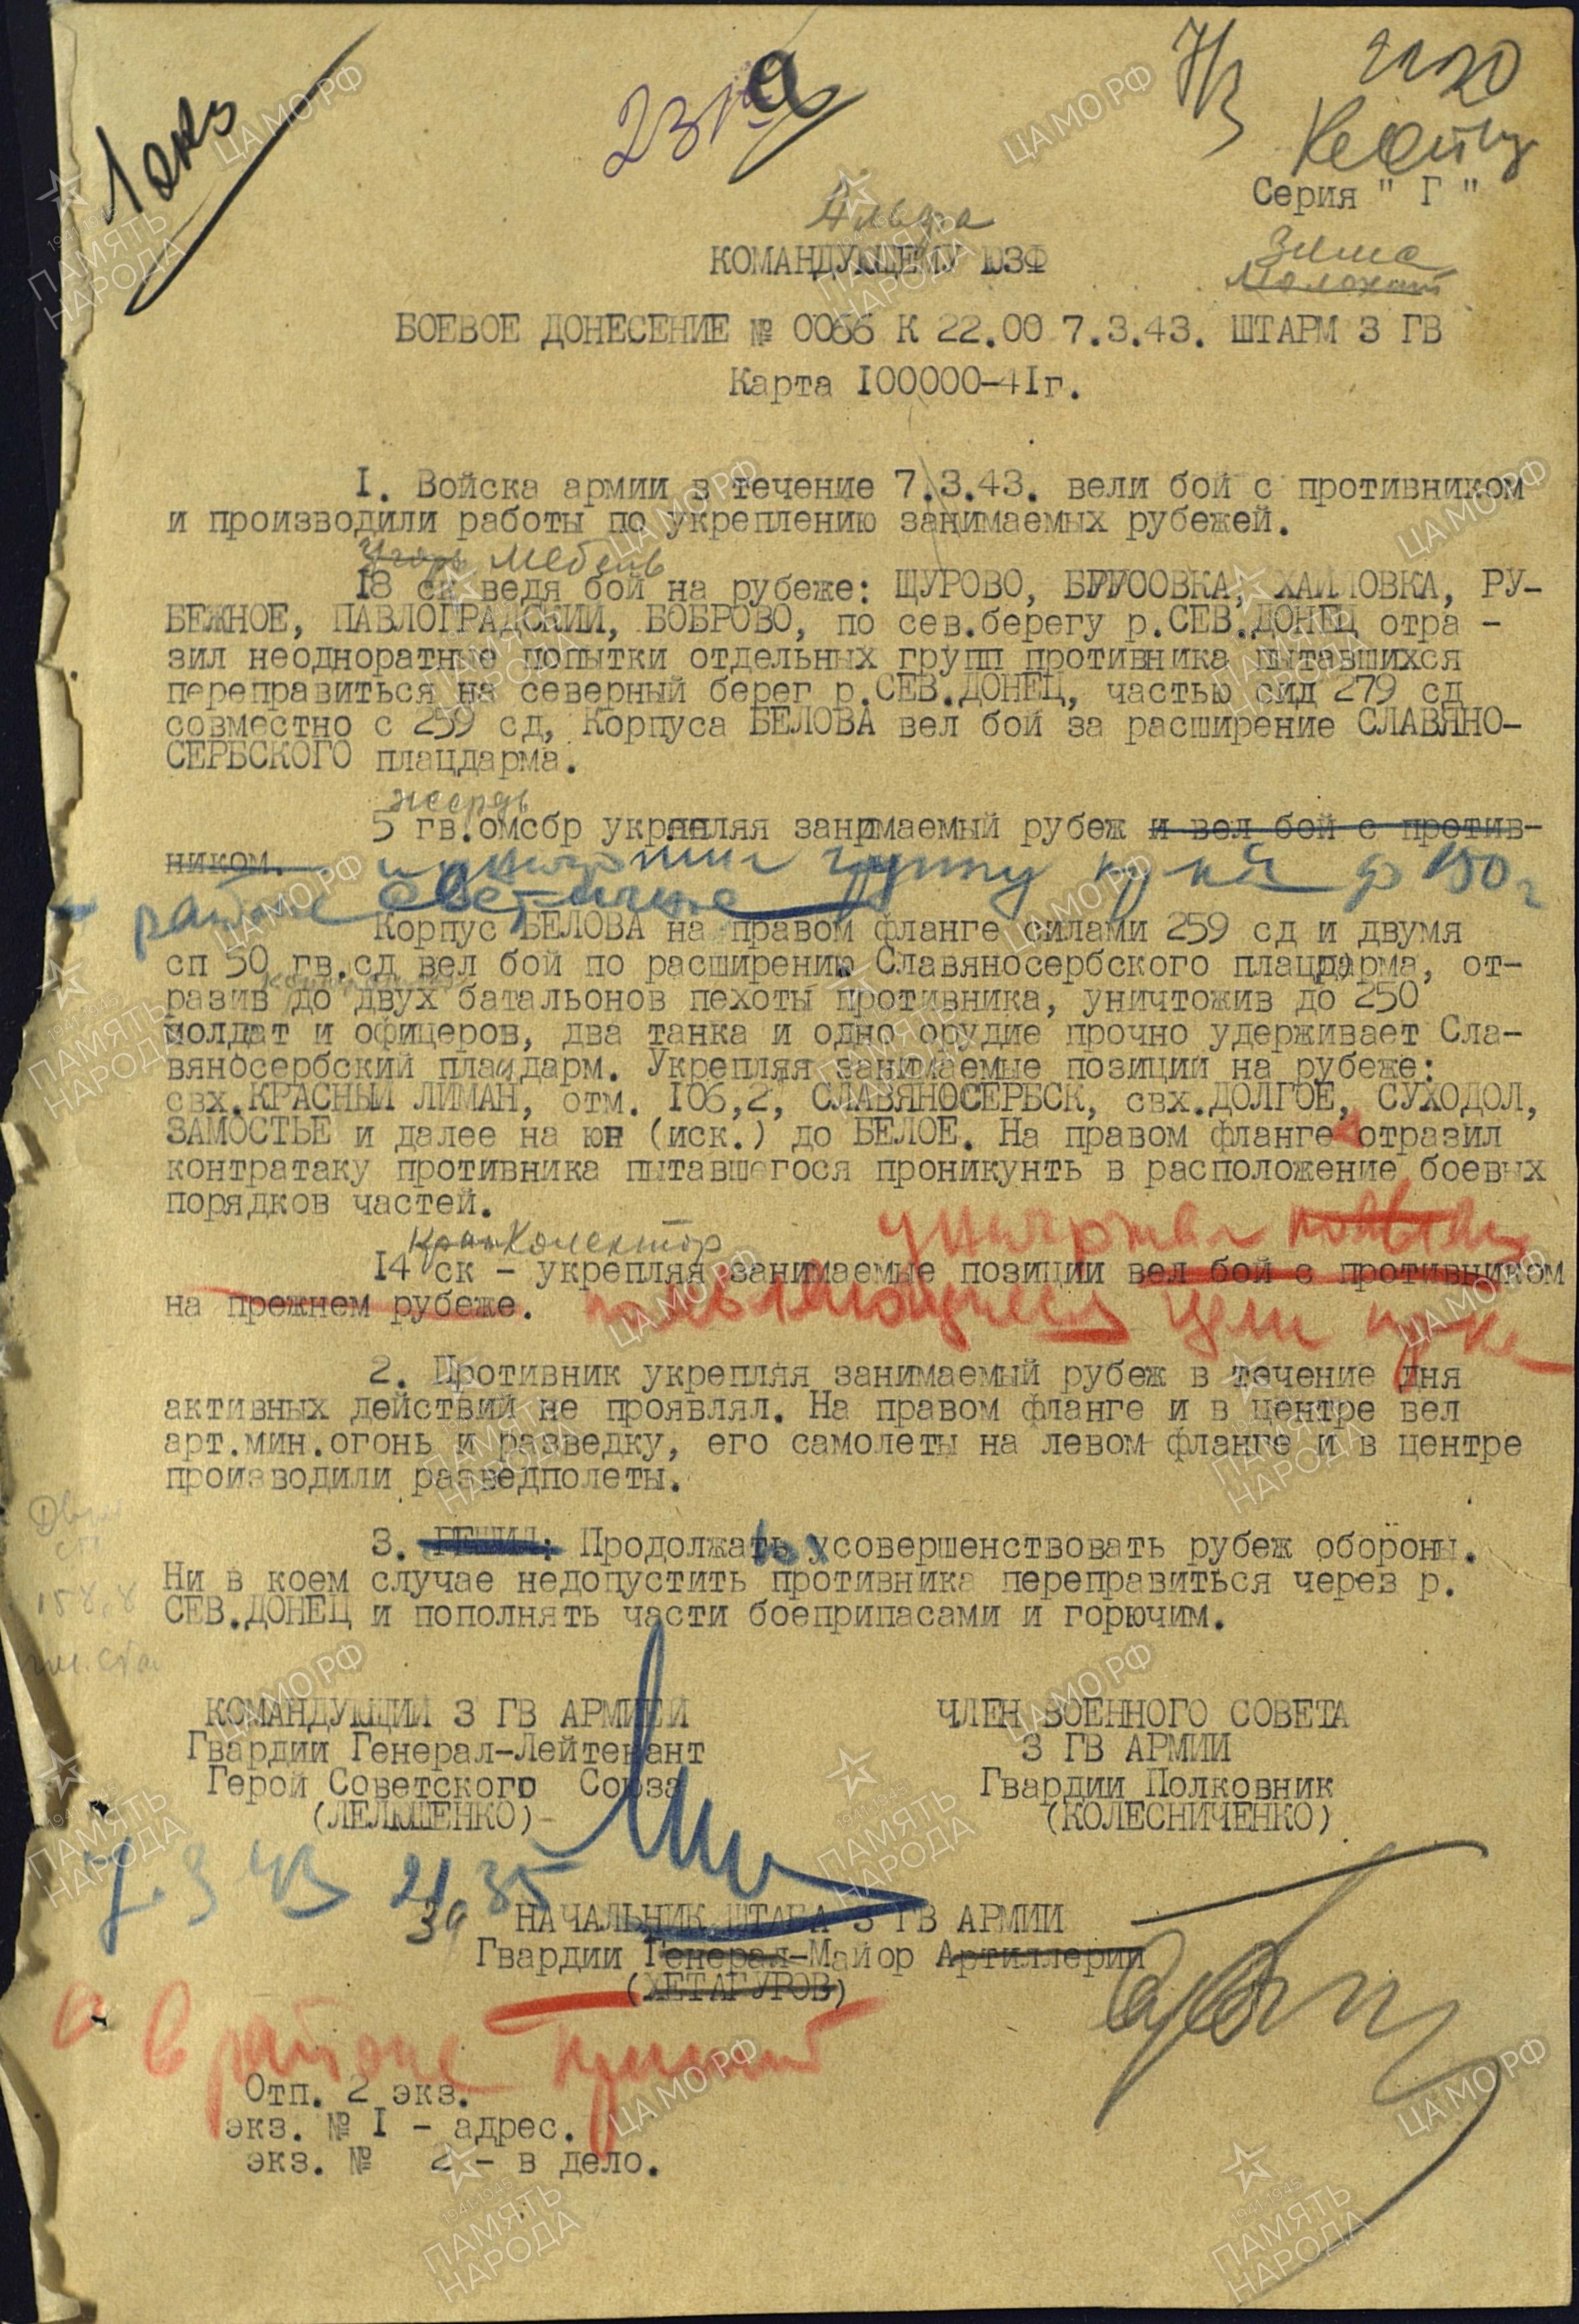 1 экз
231
7/3
2120
Серия " Г "
Альфа
КОМАНДУЮЩЕМУ ЮЗФ
Зима
БОЕВОЕ ДОНЕСЕНИЕ № 0066 К 22.00 7.3.43. ШТАРМ 3 ГВ
Карта I00000-4Iг.
I. Войска армии в течение 7.3.43. вели бой с противником
и производили работы по укреплению занимаемых рубежей.
Мебель
I8 ск ведя бой на рубеже: ЩУРОВО, БРУСОВКА, ХАЙЛОВКА, РУ-
БЕЖНОЕ, ПАВЛОГРАДСКИЙ, БОБРОВО, по сев.берегу р.СЕВ.ДОНЕЦ отра -
зил неодноратные попытки отдельных групп противника пытавшихся
переправиться на северный берег р.СЕВ.ДОНЕЦ, частью сид 279 сд
совместно с 259 сд, Корпуса БЕЛОВА вел бой за расширение СЛАВЯНО-
СЕРБСКОГО плацдарма.
жердь
5 гв.омсбр укрепляя занимаемый рубеж и вел бой с против-
ником. группу пр-ка до 150 ч
районе
Корпус БЕЛОВА на правом фланге силами 259 сд и двумя
сп 50 гв.сд вел бой по расширению Славяносербского плацдарма, от-
разив до двух батальонов пехоты противника, уничтожив до 250
солдат и офицеров, два танка и одно орудие прочно удерживает Сла-
вяносербский плацдарм. Укрепляя занимаемые позиции на рубеже:
свх.КРАСНЫЙ ЛИМАН, отм. I06,2, СЛАВЯНОСЕРБСК, свх.ДОЛГОЕ, СУХОДОЛ,
ЗАМОСТЬЕ и далее на юн (иск.) до БЕЛОЕ. На правом фланге отразил
контратаку противника пытавшегося проникунть в расположение боевых
порядков частей.
Колектор
уничтожал
I4 ск - укрепляя занимаемые позиции вел бой с противником
на прежнем рубеже. появляющиеся цели пр-ка
2. Противник укрепляя занимаемый рубеж в течение дня
активных действий не проявлял. На правом фланге и в центре вел
арт.мин.огонь и разведку, его самолеты на левом фланге и в центре
производили разведполеты.
3. РЕШИЛ: Продолжать усовершенствовать рубеж обороны.
Ни в коем случае недопустить противника переправиться через р.
СЕВ.ДОНЕЦ и пополнять части боеприпасами и горючим.
КОМАНДУЮЩИЙ 3 ГВ АРМИЕЙ
Гвардии Генерал-Лейтенант
Герой Советского Союза
(ЛЕЛЮШЕНКО)
ЧЛЕН ВОЕННОГО СОВЕТА
3 ГВ АРМИИ
Гвардии Полковник
(КОЛЕСНИЧЕНКО)
7.3 43 21 35
За НАЧАЛЬНИК ШТАБА 3 ГВ АРМИИ
Гвардии Генерал-Майор Артиллерии
(ХЕТАГУРОВ)
в районе
Отп. 2 экз.
экз. № I - адрес.
экз. № 2 - в дело.